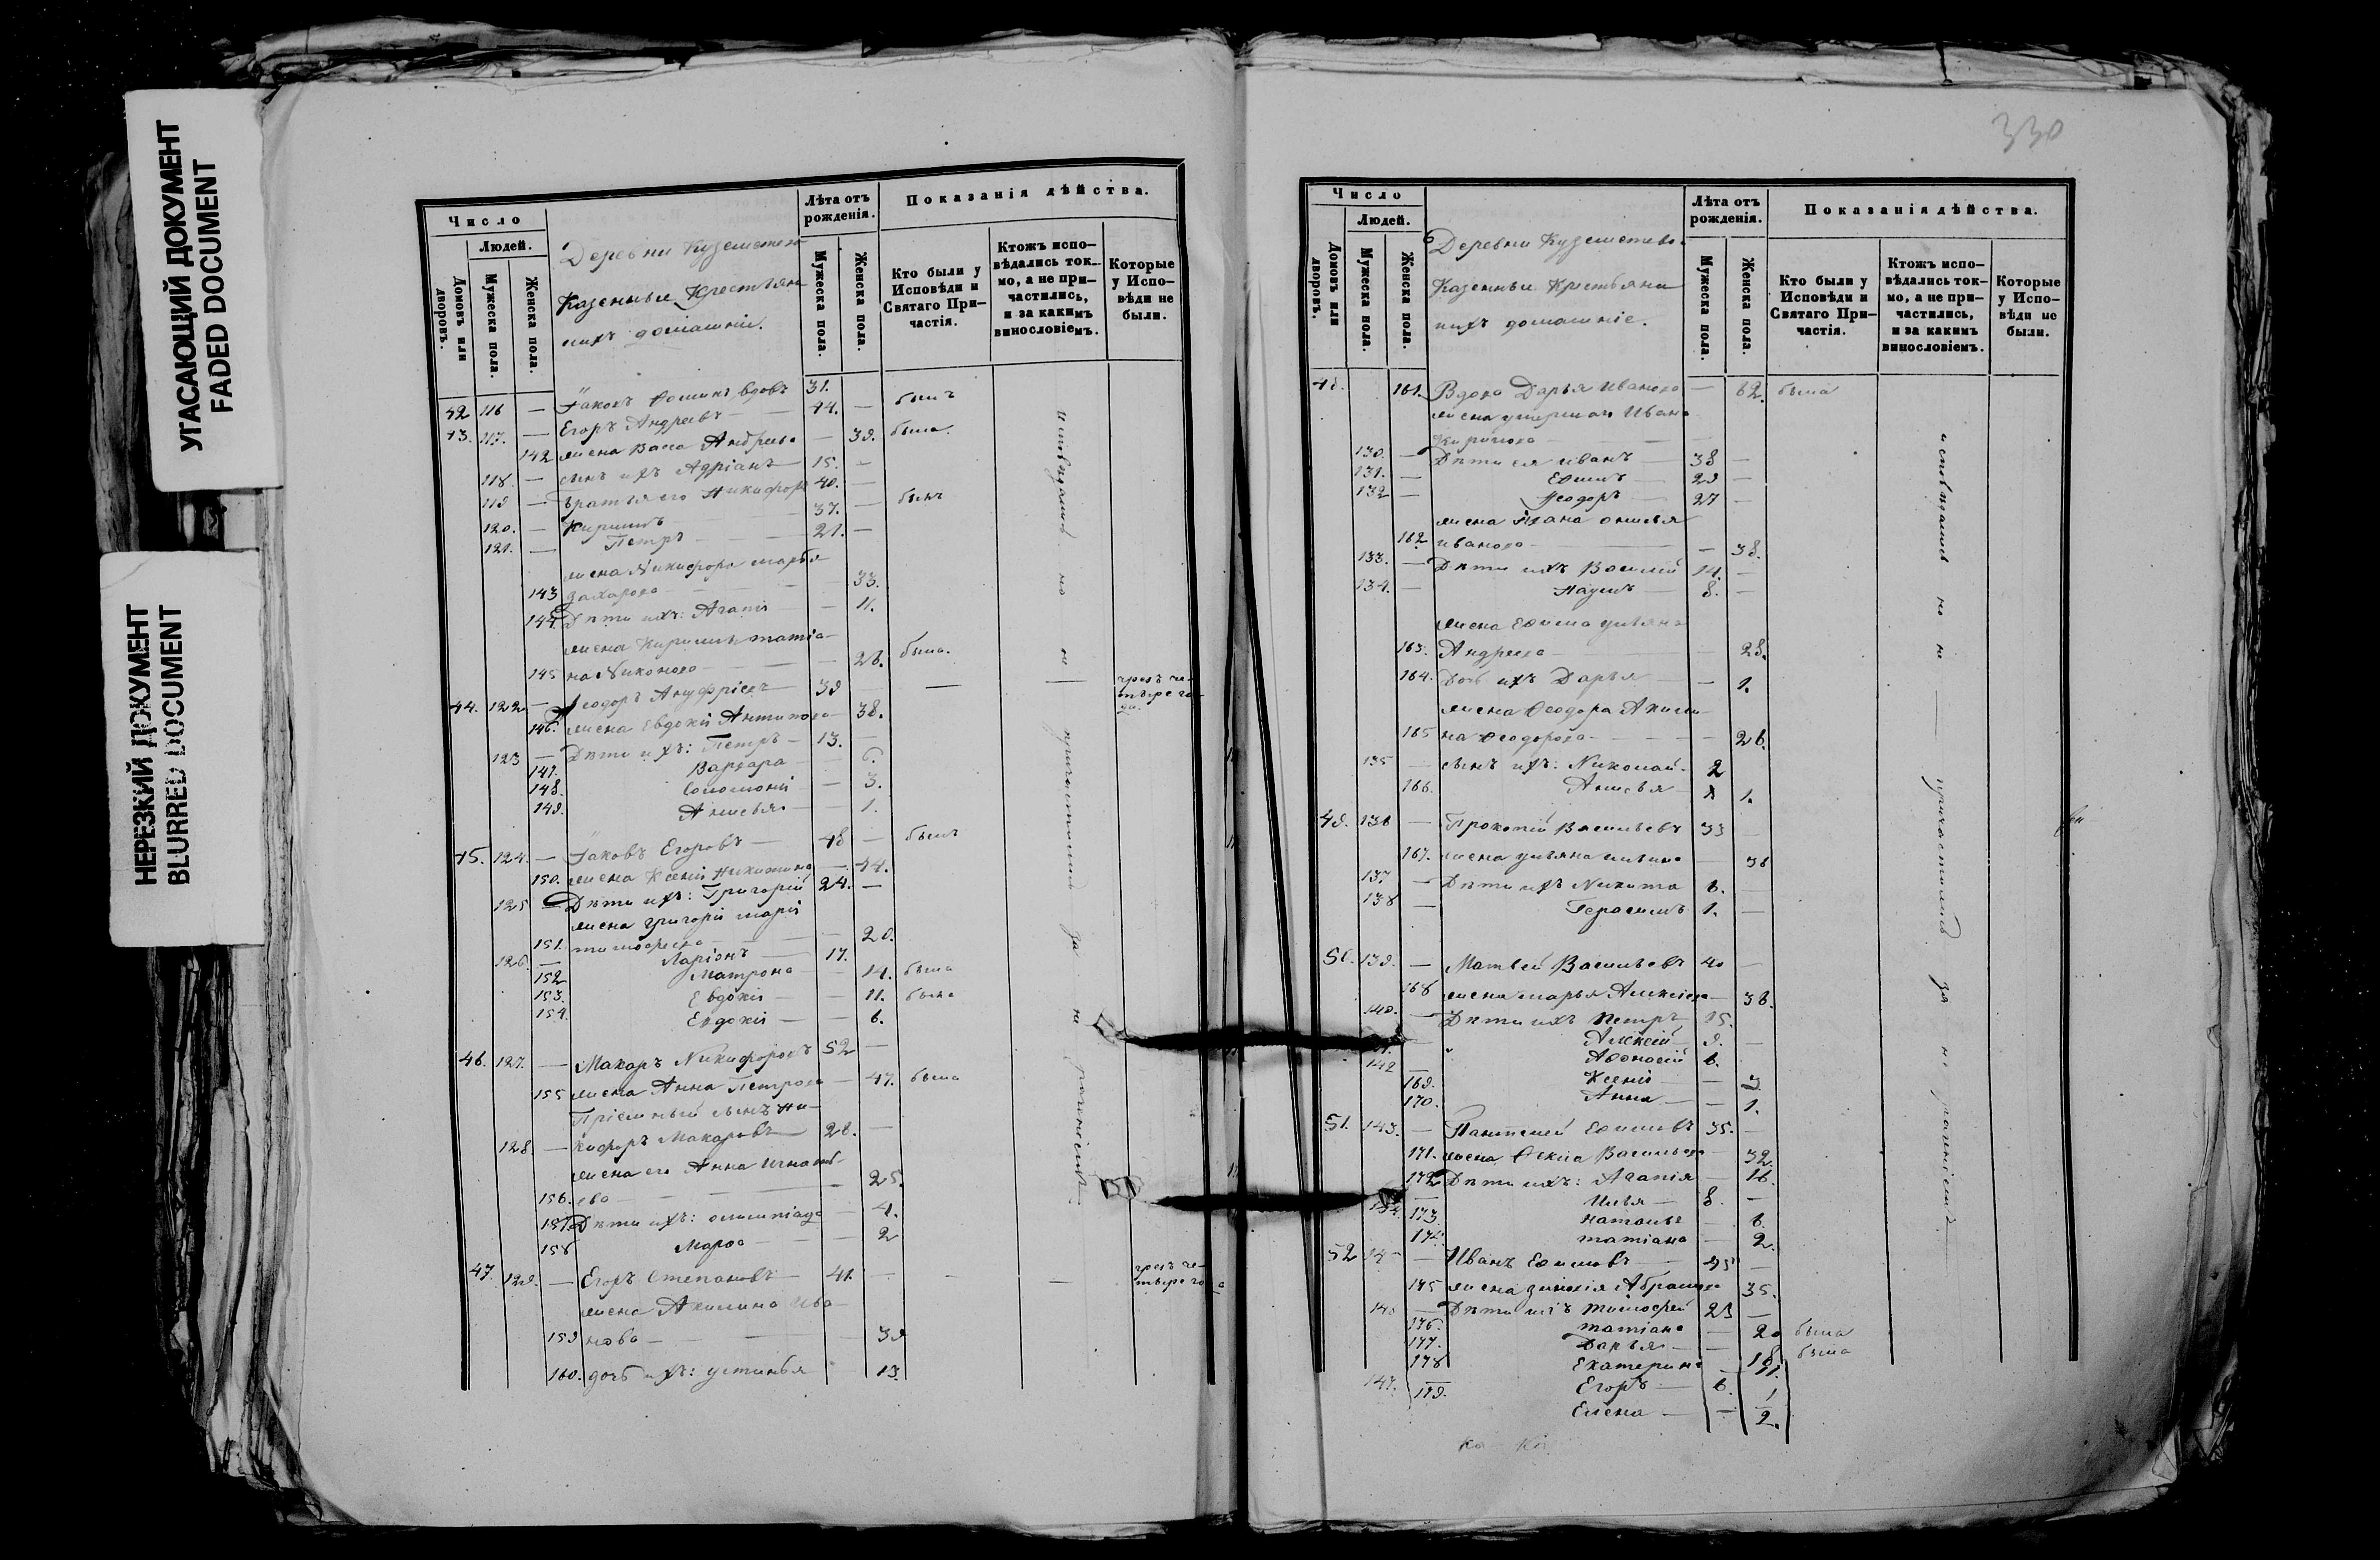 УГАСАЮЩИЙ ДОКУМЕНТ
FADED DOCUMENT
НЕРЕЗКИЙ ДОКУМЕНТ
BLURRED DOCUMENT
Число
Людей.
Домовъ или дворовъ.
Мужеска пола.
Женска пола.
Деревни
Казенные Крестьяне
ихъ домашніи.
Лѣта отъ рожденія.
Мужеска пола.
Женска пола.
Показанія дѣйства.
Кто были у Исповѣди и Святаго Причастія.
Ктожъ исповѣдались токмо, а не причастились, и за какимъ винословіемъ.
Которые у Исповѣди не были.
42 116 — Іаковъ вдовъ 31. былъ
43. 117. — Егоръ Андреевъ — 44. —
142 жена Васса Андреева — 39. была.
118. — сынъ ихъ Адріанъ — 15. —
119 — Братья его Никифоръ 40. — былъ
120. — Кириллъ 37. —
121. — Петръ — 21. —
жена Никифора марѳа
143 Захарова — 33.
144. Дѣти ихъ: Агапія — 11.
жена Кирилла татіа-
145 на Никонова — 26. была.
44. 122 — Ѳеодоръ Ануфріевъ — 39 — — — чрезъ че-
тыре го-
да.
146. жена Евдокія Антипова — 38.
123 — Дѣти ихъ: Петръ — 13. —
147. Варвара — 6.
148. Соломонія — 3.
149. Анисья — 1.
45. 124. — Іаковъ Егоровъ — 48 — былъ
150. жена Ксенія Никитина — 44.
125 — Дѣти ихъ: Григорій 24. —
жена григорія марія
151. тимофеева — 20.
126. — Ларіонъ — 17.
152 Матрона — 14. была
153. Евдокія — 11. была
154. Евдокія — 6.
46. 127. — Макаръ Никифоровъ 52 —
155 жена Анна Петрова — 47. была
Пріемный сынъ Ни-
128. — кифоръ Макаровъ 28. —
жена его Анна Игнать-
156. ева — 25.
157. Дѣти ихъ: олимпіада — 4.
158 Марѳа — 2
47. 129. — Егоръ Степановъ — 41. — — — чрезъ че-
тыре года
жена Акилина Ива-
159 нова — 39
160. дочь ихъ: устинья 13.
исповѣдались но не причастились за не раченіемъ
330
Число
Людей.
Домовъ или дворовъ.
Мужеска пола.
Женска пола.
Деревни
Казенныи Крестьяни
ихъ домашніе.
Лѣта отъ рожденія.
Мужеска пола.
Женска пола.
Показанія дѣйства.
Кто были у Исповѣди и Святаго Причастія.
Ктожъ исповѣдались токмо, а не причастились, и за какимъ винословіемъ.
Которые у Исповѣди не были.
48. 161. Вдова Дарья Иванова — 62. была
жена Ивана
130. — Дѣти ея Иванъ — 38 —
131. — Еѳимъ 29 —
132 — Ѳеодоръ 27 —
жена Ивана
162 иванова — 38.
133. — Дѣти ихъ Василій 14. —
134. — Наумъ 8. —
жена Еѳима ульяна
163. Андреева — 28.
164. Дочь ихъ Дарья — 1.
жена Ѳеодора Акили-
165 на Ѳеодорова — 26.
135 — сынъ ихъ: Николай 2
166. Анисья 1.
49. 136 — Прокопій Васильевъ 33
167. жена ульяна — 36
137 — Дѣти ихъ Никита 6. —
138 — Герасимъ 1. —
50. 139. — Матвей Васильевъ 40 —
168 жена марья Алексіева 38.
140. — Дѣти ихъ Петръ 15.
Алексій 9. —
142 Аѳонасій 6.
169. Ксенія — 3.
170. Анна — 1.
51. 143. — Пантелей Еѳимовъ 35. —
171. жена Ѳекла Васильева 32.
172 Дѣти ихъ: Агапія — 16.
Илья — 8. —
173 наталья — 6.
татіана — 2.
52 — Иванъ Еѳимовъ 45 —
175 жена Абрамова 35.
— Дѣти ихъ тимофей 23 —
176. татіана — 20 была
177. Дарья — 18. была
178 Екатерина — 11.
147. Егоръ — 6.
179. Елена — 2.
исповѣдались но не — причастились за не раченіемъ